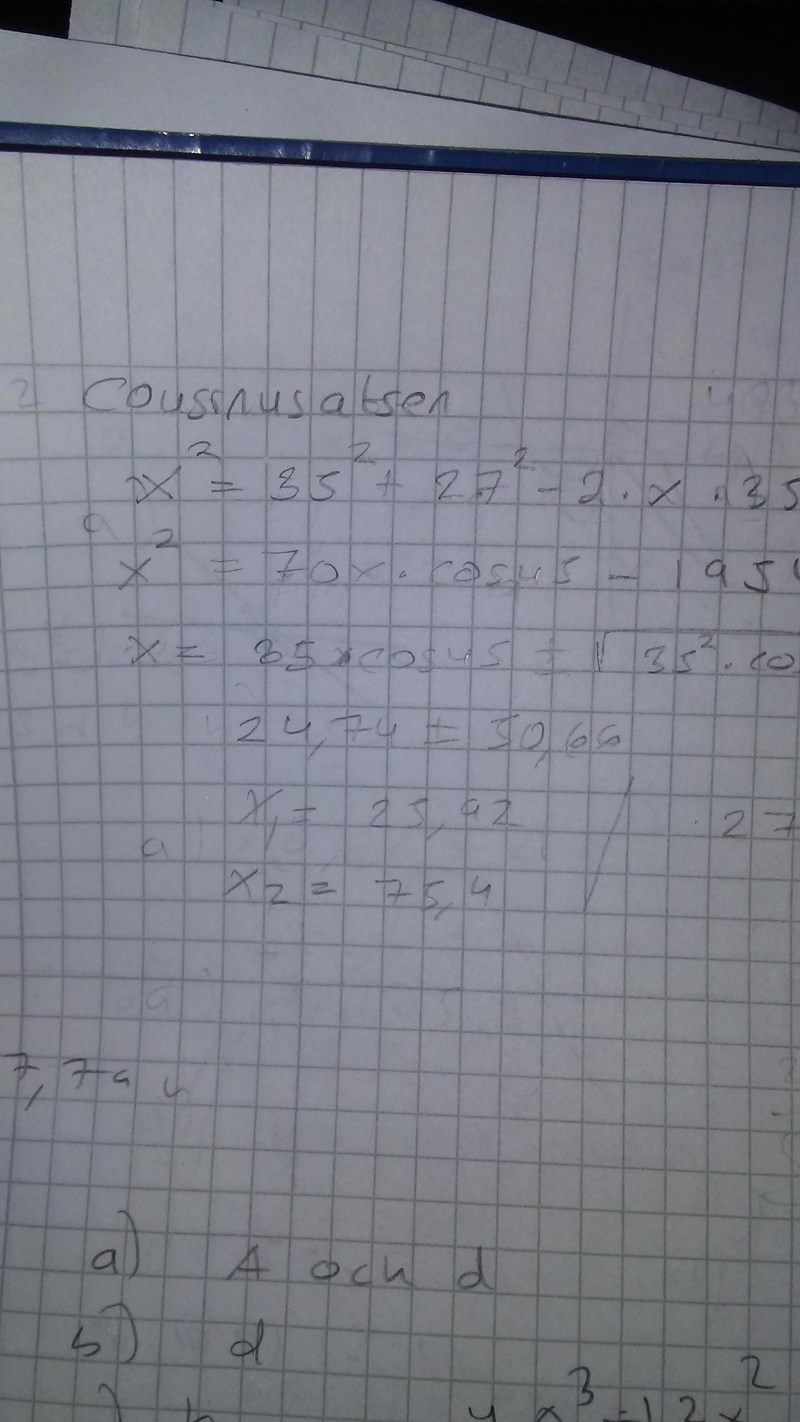 Coussinusatsen
x² = 35² + 27² - 2 · x · 35
x² = 70x · cos45 - 195
x = 35 · cos45 ± √35² · co
24,74 ± 50,66
x₁ = 25,92
27
x₂ = 75,4
7,79
a) A och d
b) d
4x³ - 12x²